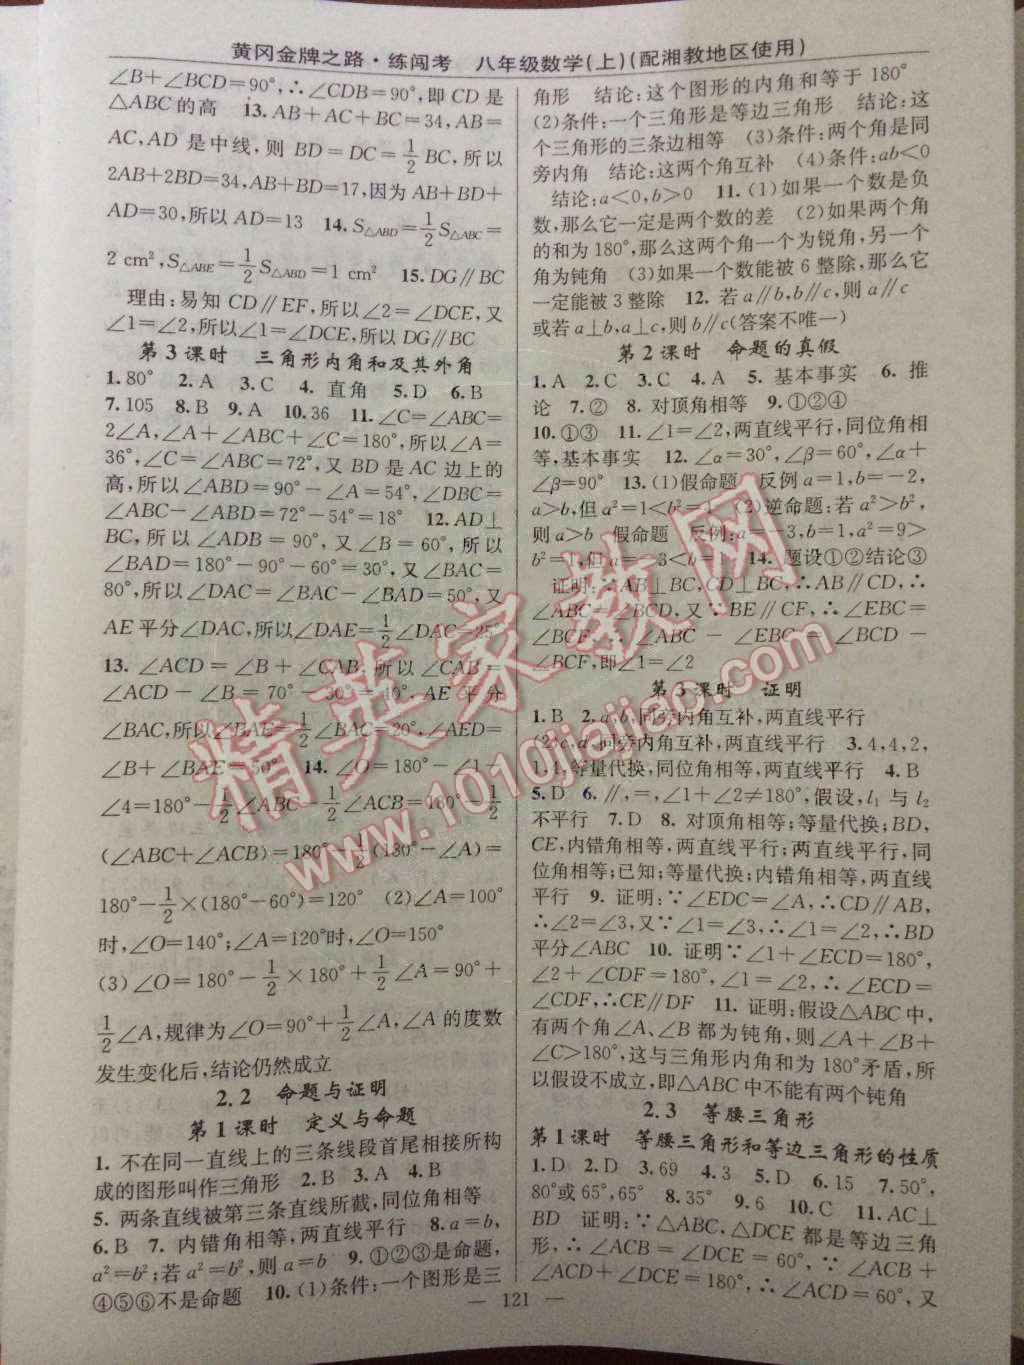 黄冈金牌之路·练闯考　八年级数学(上)(配湘教地区使用)
∠B+∠BCD=90°,∴∠CDB=90°,即 CD 是
△ABC 的高　13. AB+AC+BC=34,AB=
AC,AD 是中线,则 BD=DC=1/2 BC,所以
2AB+2BD=34,AB+BD=17,因为 AB+BD+
AD=30,所以 AD=13　14. S△ABD=1/2 S△ABC=
2 cm²,S△ABE=1/2 S△ABD=1 cm²　15. DG∥BC
理由:易知 CD∥EF,所以∠2=∠DCE,又
∠1=∠2,所以∠1=∠DCE,所以 DG∥BC
第 3 课时　三角形内角和及其外角
1. 80°　2. A　3. C　4. 直角　5. D　6. B
7. 105　8. B　9. A　10. 36　11. ∠C=∠ABC=
2∠A,∠A+∠ABC+∠C=180°,所以∠A=
36°,∠C=∠ABC=72°,又 BD 是 AC 边上的
高,所以∠ABD=90°-∠A=54°,∠DBC=
∠ABC-∠ABD=72°-54°=18°　12. AD⊥
BC,所以∠ADB=90°,又∠B=60°,所以
∠BAD=180°-90°-60°=30°,又∠BAC=
80°,所以∠DAC=∠BAC-∠BAD=50°,又
AE 平分∠DAC,所以∠DAE=1/2∠DAC=25°
13. ∠ACD=∠B+∠CAB,所以∠CAB=
∠ACD-∠B=70°-30°=40°,AE 平分
∠BAC,所以∠BAE=1/2∠BAC=20°,∠AED=
∠B+∠BAE=50°　14. ∠O=180°-∠1-
∠4=180°-1/2∠ABC-1/2∠ACB=180°-1/2
(∠ABC+∠ACB)=180°-1/2(180°-∠A)=
180°-1/2×(180°-60°)=120°　(2)∠A=100°
时,∠O=140°;∠A=120°时,∠O=150°
(3)∠O=180°-1/2×180°+1/2∠A=90°+
1/2∠A,规律为∠O=90°+1/2∠A,∠A 的度数
发生变化后,结论仍然成立
2.2　命题与证明
第 1 课时　定义与命题
1. 不在同一直线上的三条线段首尾相接所构
成的图形叫作三角形　2. B　3. A　4. B
5. 两条直线被第三条直线所截,同位角相等
6. B　7. 内错角相等,两直线平行　8. a=b,
a²=b²;若 a²=b²,则 a=b　9. ①②③是命题,
④⑤⑥不是命题　10. (1)条件:一个图形是三
角形　结论:这个图形的内角和等于 180°
(2)条件:一个三角形是等边三角形　结论:这
个三角形的三条边相等　(3)条件:两个角是同
旁内角　结论:这两个角互补　(4)条件:ab<0
结论:a<0,b>0　11. (1)如果一个数是负
数,那么它一定是两个数的差　(2)如果两个角
的和为 180°,那么这两个角一个为锐角,另一个
角为钝角　(3)如果一个数能被 6 整除,那么它
一定能被 3 整除　12. 若 a∥b,b∥c,则 a∥c
或若 a⊥b,a⊥c,则 b∥c(答案不唯一)
第 2 课时　命题的真假
1. A　2. C　3. C　4. A　5. 基本事实　6. 推
论　7. ②　8. 对顶角相等　9. ①②④
10. ①③　11. ∠1=∠2,两直线平行,同位角相
等,基本事实　12. ∠α=30°,∠β=60°,∠α+
∠β=90°　13. (1)假命题　反例 a=1,b=-2,
a>b,但 a²=1<b²=4　(2)逆命题:若 a²>b²,
则 a>b　假命题　反例:a=-3,b=1,a²=9>
b²=1,但 a=-3<b=1　14. 题设①②结论③
证明:∵AB⊥BC,CD⊥BC,∴AB∥CD,∴
∠ABC=∠BCD,又∵BE∥CF,∴∠EBC=
∠BCF,∴∠ABC-∠EBC=∠BCD-
∠BCF,即∠1=∠2
第 3 课时　证明
1. B　2. a,b,同旁内角互补,两直线平行
(2)c,d,同旁内角互补,两直线平行　3. 4,4,2,
1,4,等量代换,同位角相等,两直线平行　4. B
5. D　6. ∥,=,∠1+∠2≠180°,假设,l₁ 与 l₂
不平行　7. D　8. 对顶角相等;等量代换;BD,
CE,内错角相等,两直线平行;两直线平行,同
位角相等;已知;等量代换;内错角相等,两直线
平行　9. 证明:∵∠EDC=∠A,∴CD∥AB,
∴∠2=∠3,又∵∠1=∠3,∴∠1=∠2,∴BD
平分∠ABC　10. 证明∵∠1+∠ECD=180°,
∠2+∠CDF=180°,∠1=∠2,∴∠ECD=
∠CDF,∴CE∥DF　11. 证明:假设△ABC 中,
有两个角∠A、∠B 都为钝角,则∠A+∠B+
∠C>180°,这与三角形内角和为 180°矛盾,所
以假设不成立,即△ABC 中不能有两个钝角
2.3　等腰三角形
第 1 课时　等腰三角形和等边三角形的性质
1. D　2. D　3. 69　4. 3　5. D　6. 15　7. 50°,
80°或 65°,65°　8. 35°　9. 6　10. C　11. AC⊥
BD　证明:∵△ABC,△DCE 都是等边三角
形,∴∠ACB=∠DCE=60°,∵∠ACB+
∠ACD+∠DCE=180°,∴∠ACD=60°,又
— 121 —
精英家教网
www.1010jiajiao.com